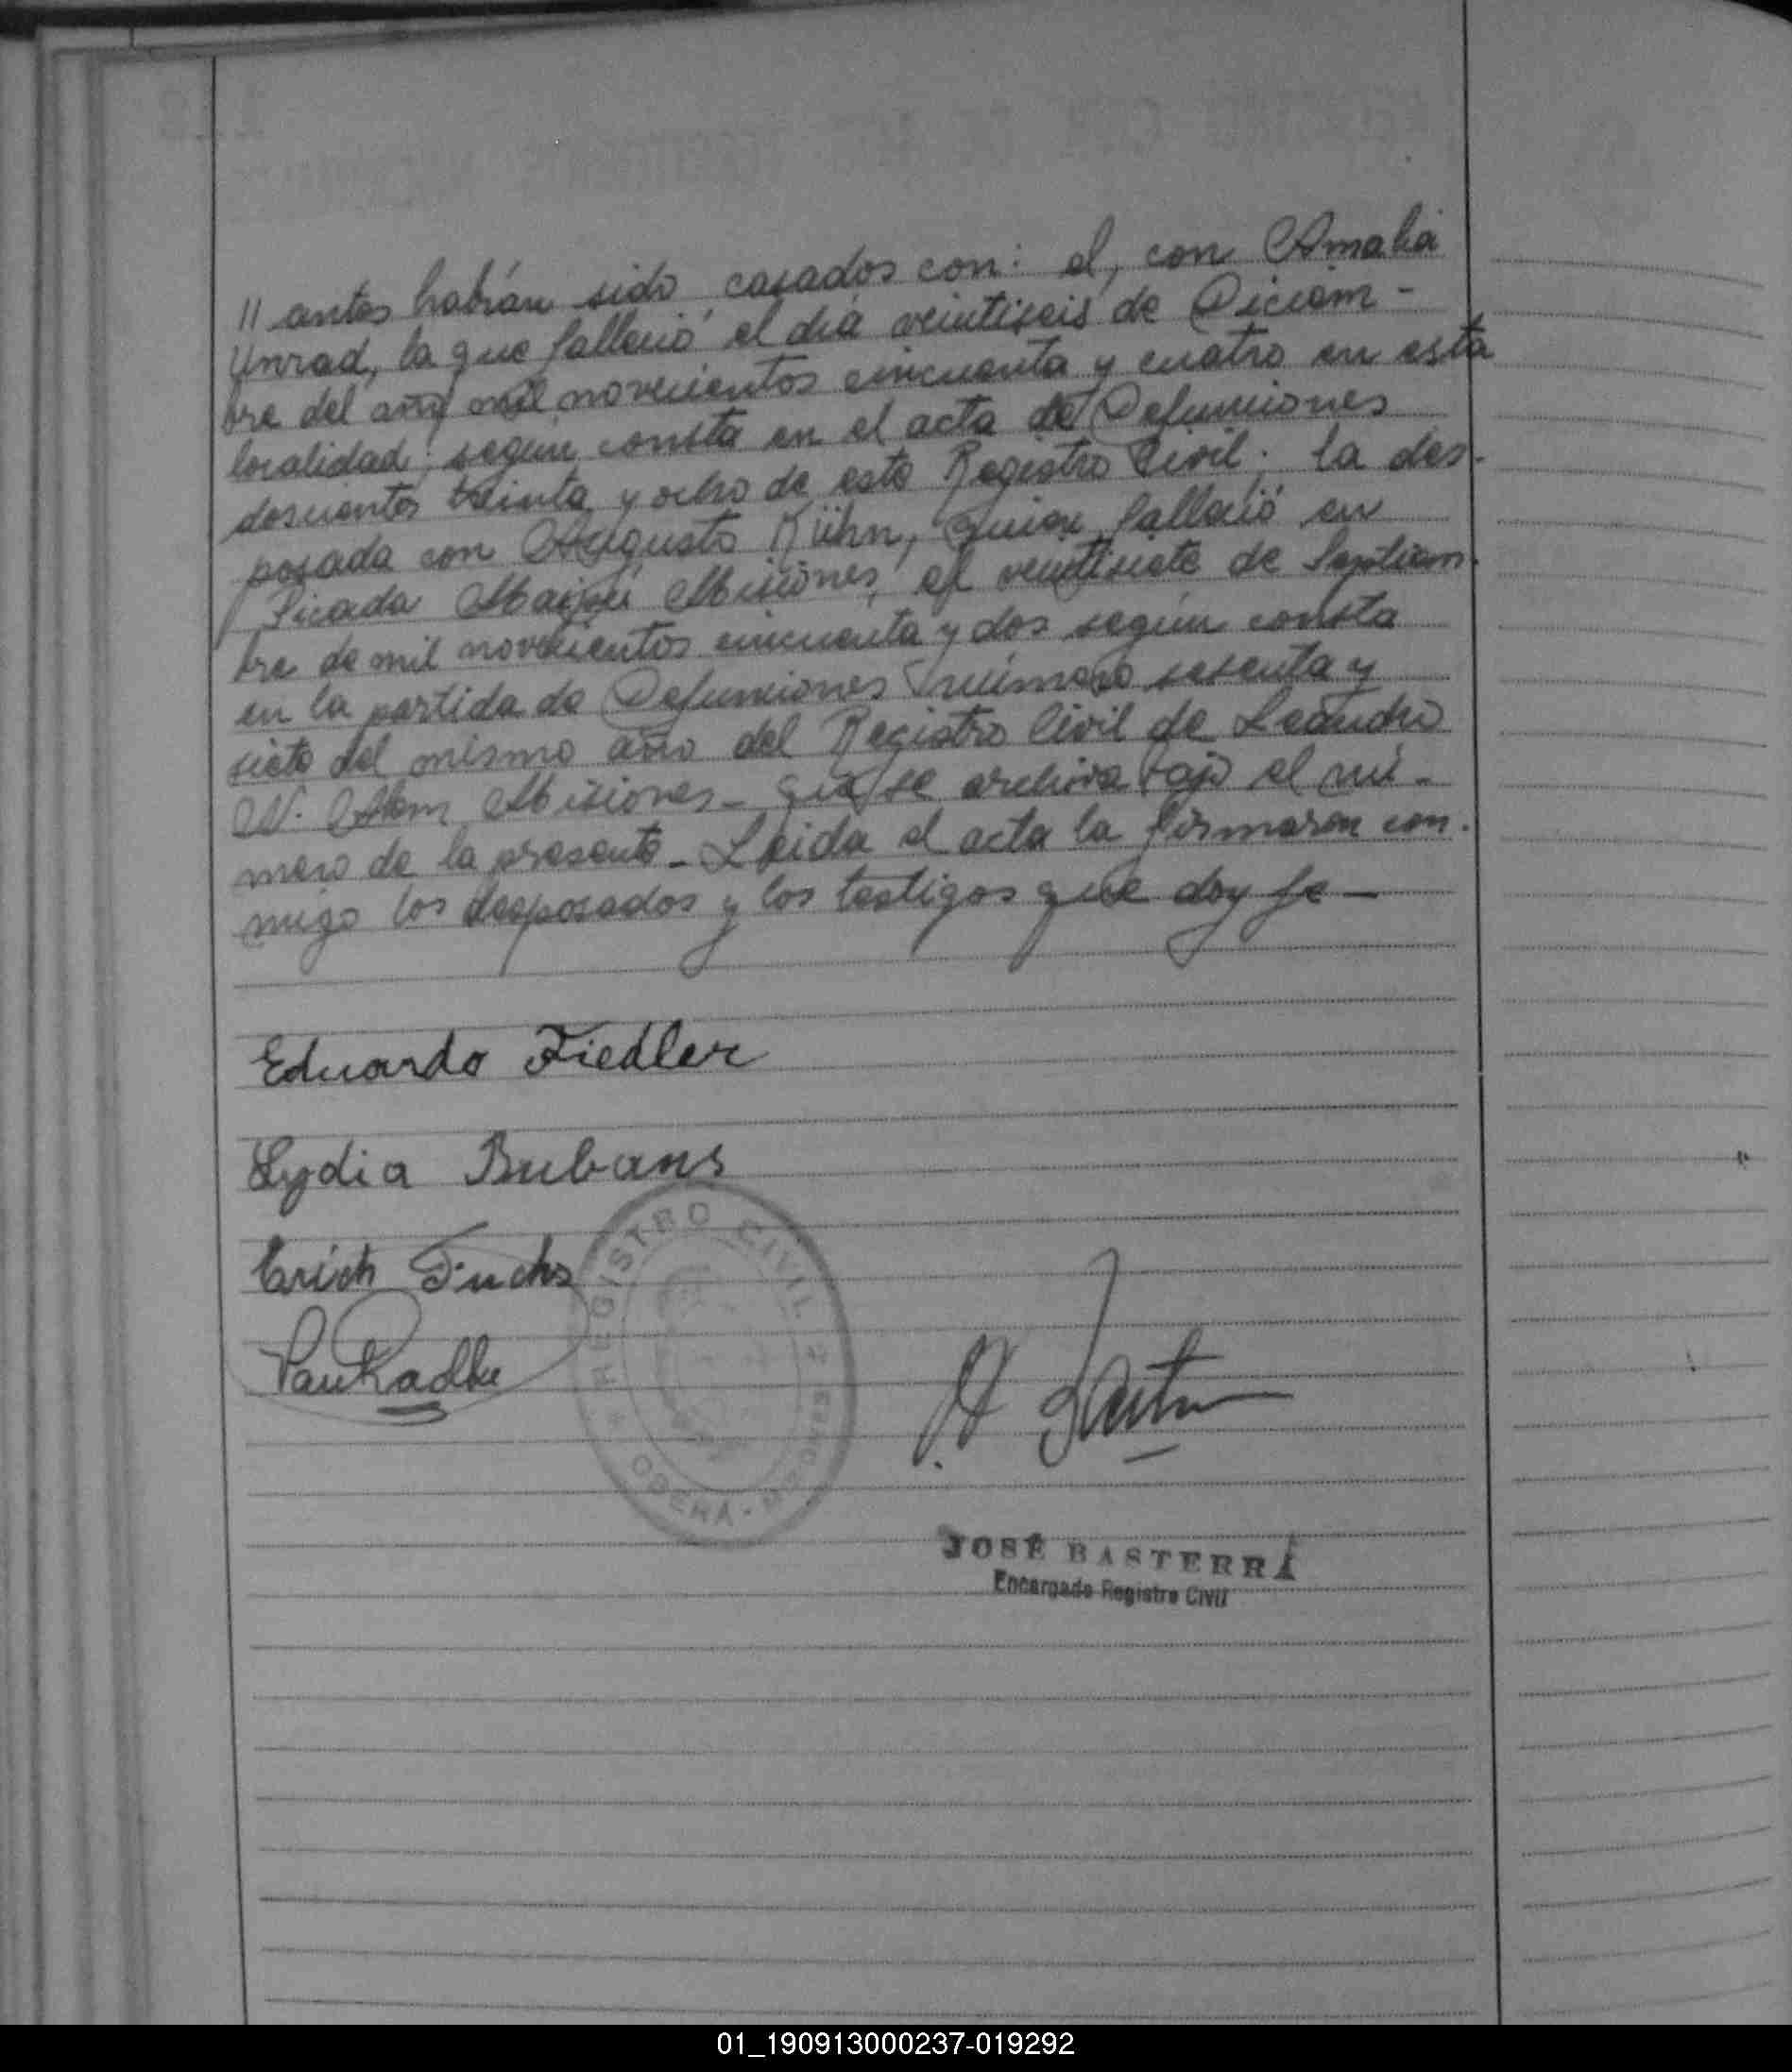 // antes habían sido casados con: el, con Amalia
Unrad, la que falleció el día veintiseis de Diciem-
bre del año mil novecientos cincuenta y cuatro en esta
localidad, según consta en el acta de Defunciones
doscientos treinta y ocho de este Registro Civil; la des-
posada con Augusto Kühn, quien falleció en
Picada Maipú Misiones, el veintisiete de Septiem-
bre de mil novecientos cincuenta y dos según consta
en la partida de Defunciones número sesenta y
siete del mismo año del Registro Civil de Leandro
N. Alem Misiones - que se archiva bajo el nú-
mero de la presente - Leida el acta la firmaron con-
migo los desposados y los testigos que doy fe -
Eduardo Fiedler
Lydia Bubans
Erich Fuchs
REGISTRO CIVIL
OBERÁ
JOSÉ BASTERRA
Encargado Registro Civil
01_190913000237-019292